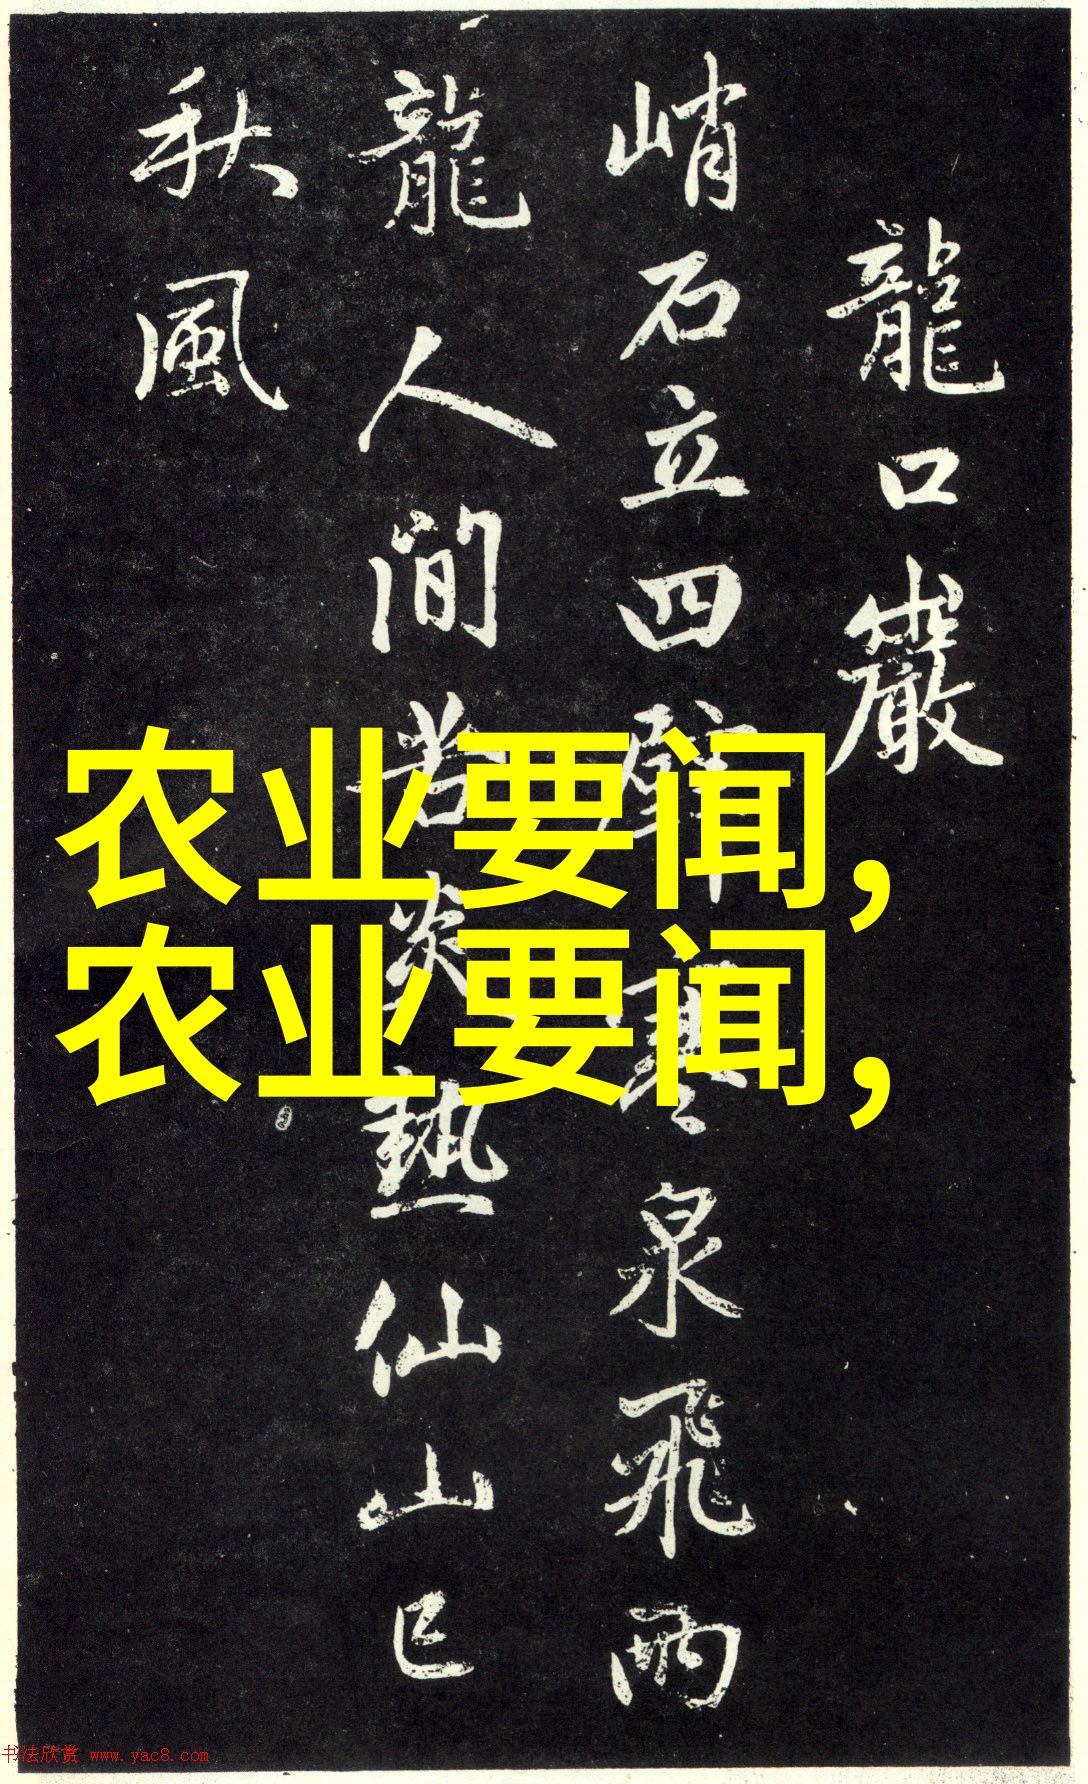 龍口巖
峭石立四壁寒泉飛雨
龍人間苦炎熱仙山已
秋風
农业要闻,
农业要闻,
书法欣赏 www.yac8.com